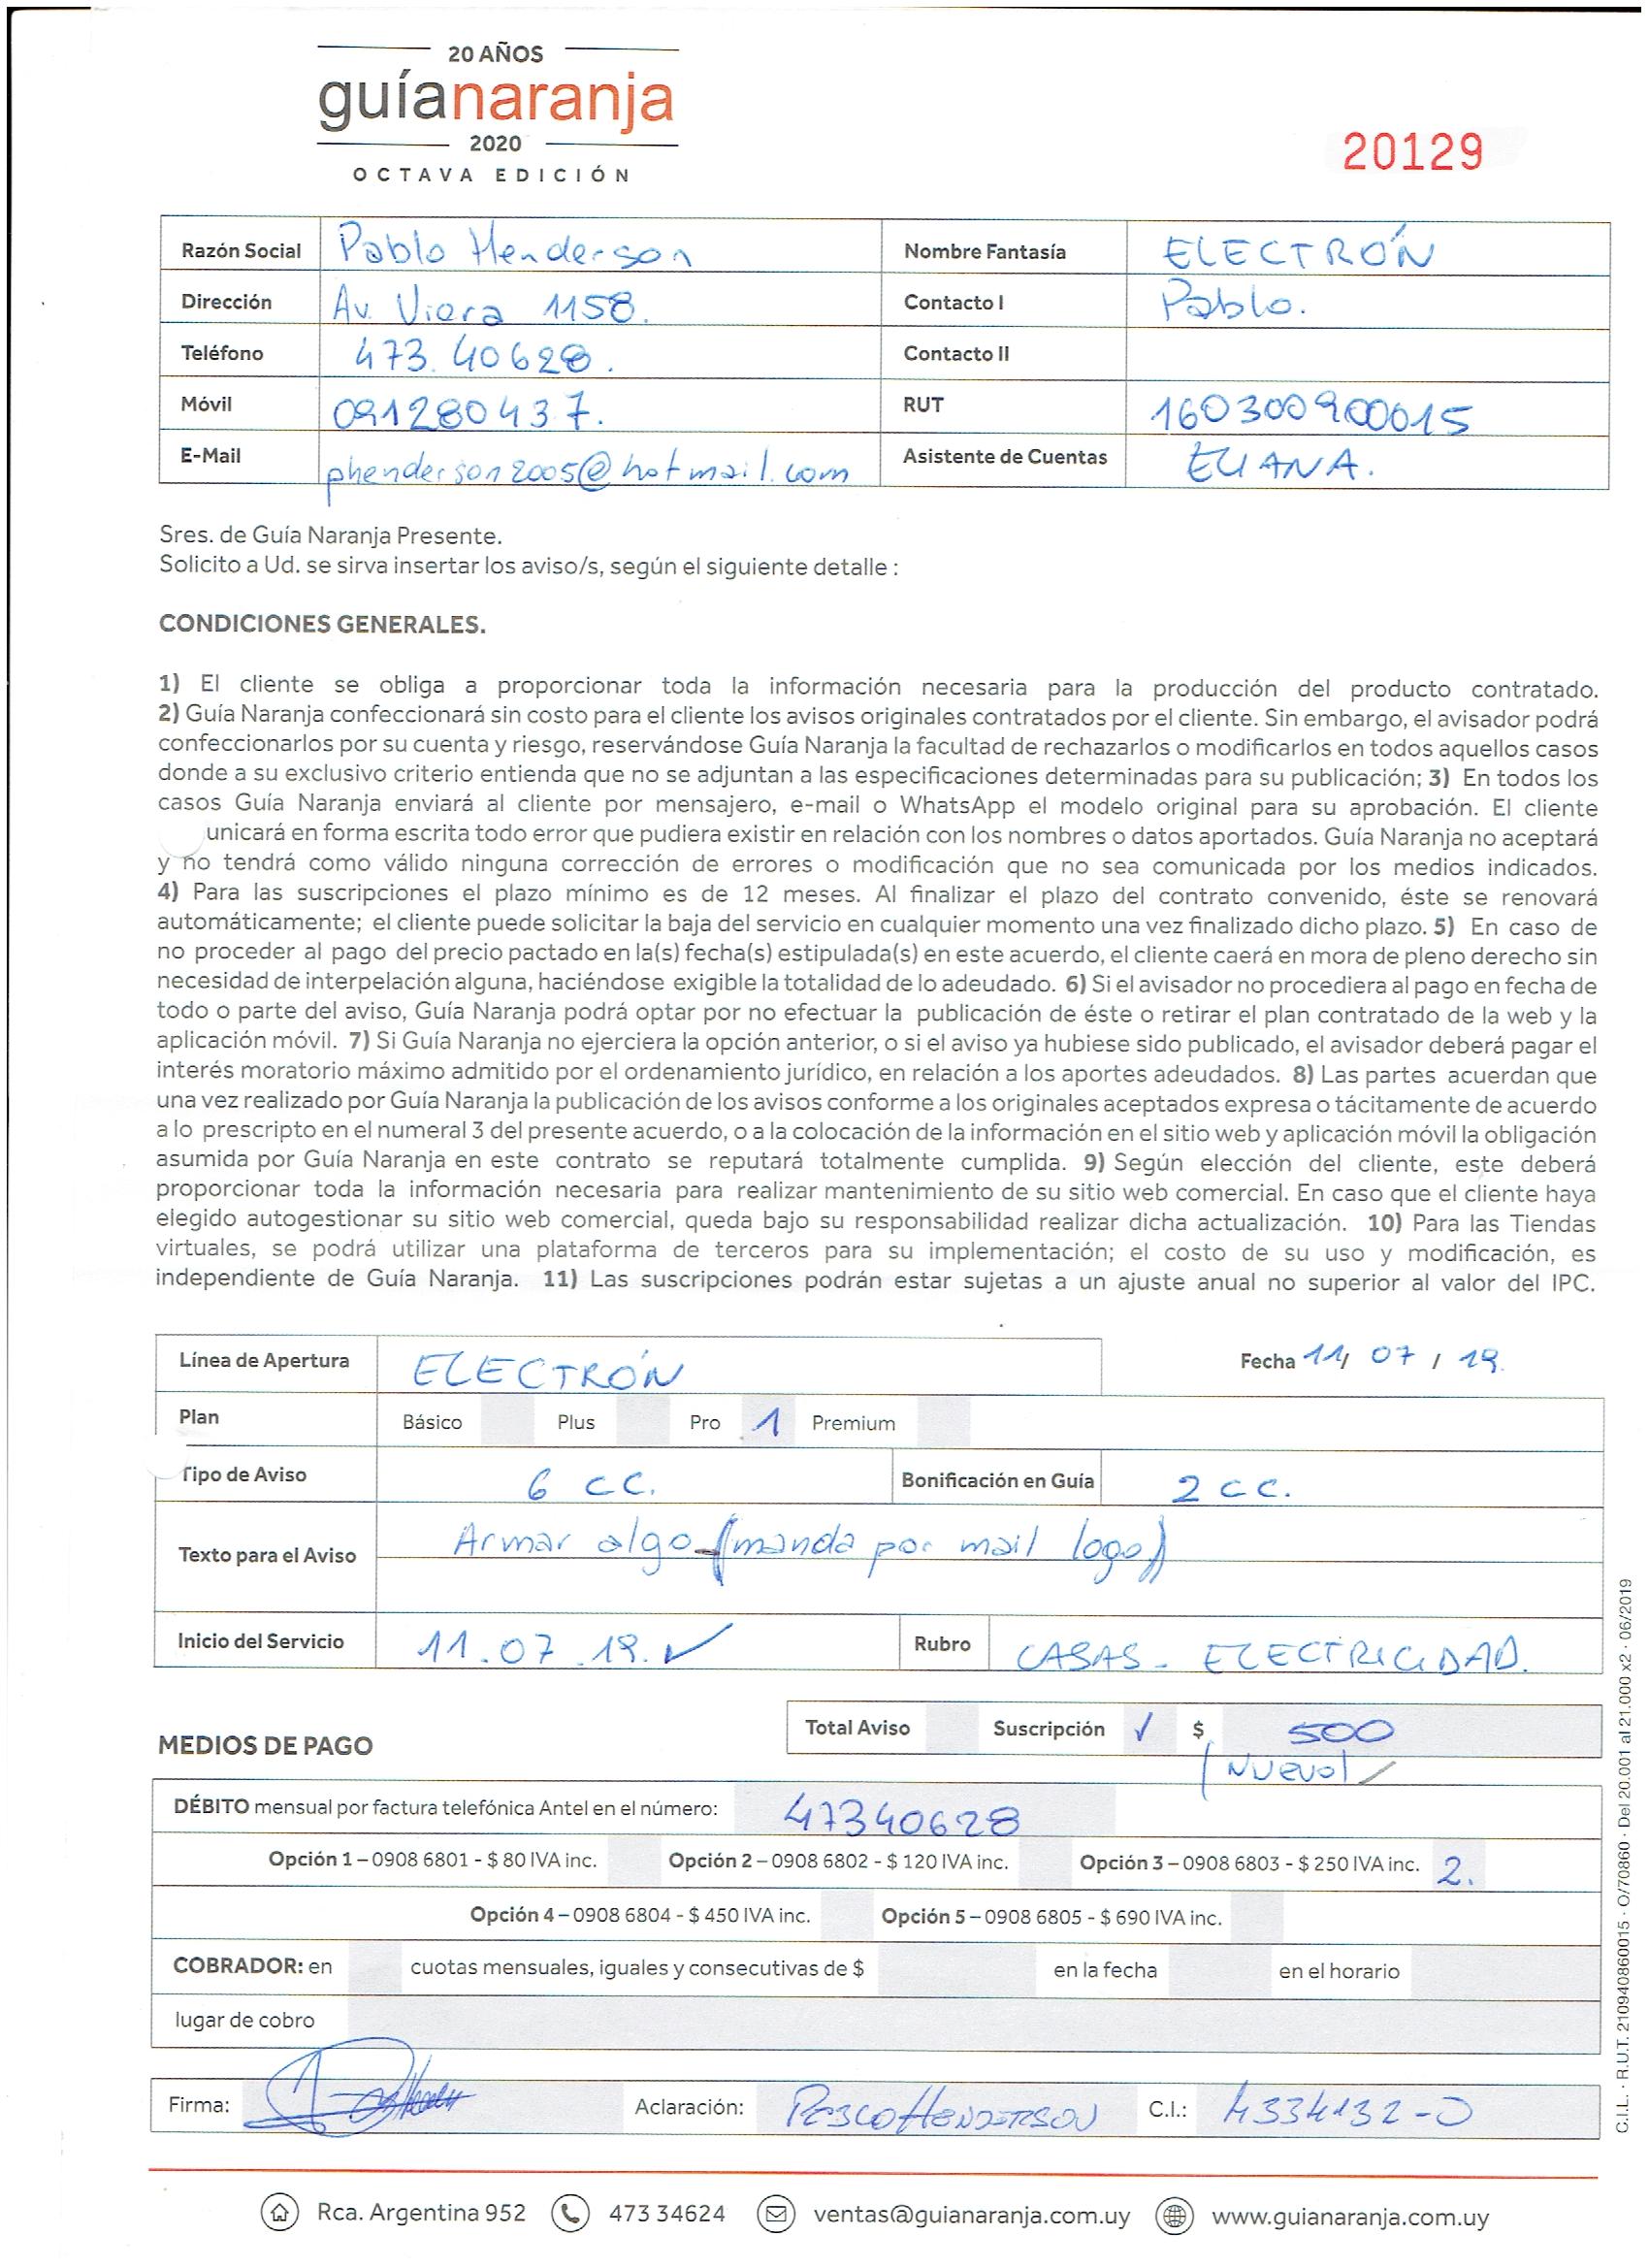 20 AÑOS
guíanaranja
2020
OCTAVA EDICIÓN
20129
Razón Social Pablo Henderson Nombre Fantasía ELECTRÓN
Dirección Av. Viera 1158. Contacto I Pablo.
Teléfono 473.40628. Contacto II
Móvil 091280437. RUT 160300900015
E-Mail phenderson2005@hotmail.com Asistente de Cuentas ELIANA.
Sres. de Guía Naranja Presente.
Solicito a Ud. se sirva insertar los aviso/s, según el siguiente detalle :
CONDICIONES GENERALES.
1) El cliente se obliga a proporcionar toda la información necesaria para la producción del producto contratado.
2) Guía Naranja confeccionará sin costo para el cliente los avisos originales contratados por el cliente. Sin embargo, el avisador podrá
confeccionarlos por su cuenta y riesgo, reservándose Guía Naranja la facultad de rechazarlos o modificarlos en todos aquellos casos
donde a su exclusivo criterio entienda que no se adjuntan a las especificaciones determinadas para su publicación; 3) En todos los
casos Guía Naranja enviará al cliente por mensajero, e-mail o WhatsApp el modelo original para su aprobación. El cliente
unicará en forma escrita todo error que pudiera existir en relación con los nombres o datos aportados. Guía Naranja no aceptará
y no tendrá como válido ninguna corrección de errores o modificación que no sea comunicada por los medios indicados.
4) Para las suscripciones el plazo mínimo es de 12 meses. Al finalizar el plazo del contrato convenido, éste se renovará
automáticamente; el cliente puede solicitar la baja del servicio en cualquier momento una vez finalizado dicho plazo. 5) En caso de
no proceder al pago del precio pactado en la(s) fecha(s) estipulada(s) en este acuerdo, el cliente caerá en mora de pleno derecho sin
necesidad de interpelación alguna, haciéndose exigible la totalidad de lo adeudado. 6) Si el avisador no procediera al pago en fecha de
todo o parte del aviso, Guía Naranja podrá optar por no efectuar la publicación de éste o retirar el plan contratado de la web y la
aplicación móvil. 7) Si Guía Naranja no ejerciera la opción anterior, o si el aviso ya hubiese sido publicado, el avisador deberá pagar el
interés moratorio máximo admitido por el ordenamiento jurídico, en relación a los aportes adeudados. 8) Las partes acuerdan que
una vez realizado por Guía Naranja la publicación de los avisos conforme a los originales aceptados expresa o tácitamente de acuerdo
a lo prescripto en el numeral 3 del presente acuerdo, o a la colocación de la información en el sitio web y aplicación móvil la obligación
asumida por Guía Naranja en este contrato se reputará totalmente cumplida. 9) Según elección del cliente, este deberá
proporcionar toda la información necesaria para realizar mantenimiento de su sitio web comercial. En caso que el cliente haya
elegido autogestionar su sitio web comercial, queda bajo su responsabilidad realizar dicha actualización. 10) Para las Tiendas
virtuales, se podrá utilizar una plataforma de terceros para su implementación; el costo de su uso y modificación, es
independiente de Guía Naranja. 11) Las suscripciones podrán estar sujetas a un ajuste anual no superior al valor del IPC.
Línea de Apertura ELECTRÓN Fecha 11/ 07 / 19.
Plan Básico Plus Pro 1 Premium
Tipo de Aviso 6 CC. Bonificación en Guía 2 CC.
Texto para el Aviso Armar algo (manda por mail logo)
Inicio del Servicio 11.07.19. ✓ Rubro CASAS - ELECTRICIDAD.
Total Aviso Suscripción ✓ $ 500
MEDIOS DE PAGO
(NUEVO)
DÉBITO mensual por factura telefónica Antel en el número: 47340628
Opción 1 – 0908 6801 - $ 80 IVA inc. Opción 2 – 0908 6802 - $ 120 IVA inc. Opción 3 – 0908 6803 - $ 250 IVA inc. 2.
Opción 4 – 0908 6804 - $ 450 IVA inc. Opción 5 – 0908 6805 - $ 690 IVA inc.
COBRADOR: en cuotas mensuales, iguales y consecutivas de $ en la fecha en el horario
lugar de cobro
Firma: Aclaración: PABLO HENDERSON C.I.: 4334132-0
Rca. Argentina 952 473 34624 ventas@guianaranja.com.uy www.guianaranja.com.uy
C.I.L. · R.U.T. 210940860015 · O/70860 · Del 20.001 al 21.000 x2 · 06/2019